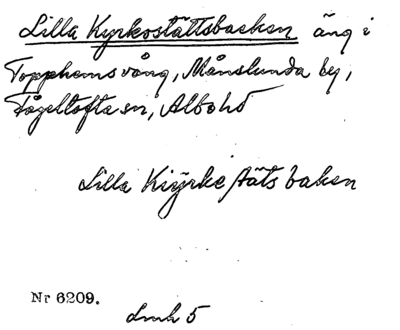 Lilla Kyrkostättsbacken äng i
Topphems vång, Månslunda by,
Fågeltofta sn, Albo hd
Lilla Kiÿrke stäts baken
Nr 6209.
Lmk 5